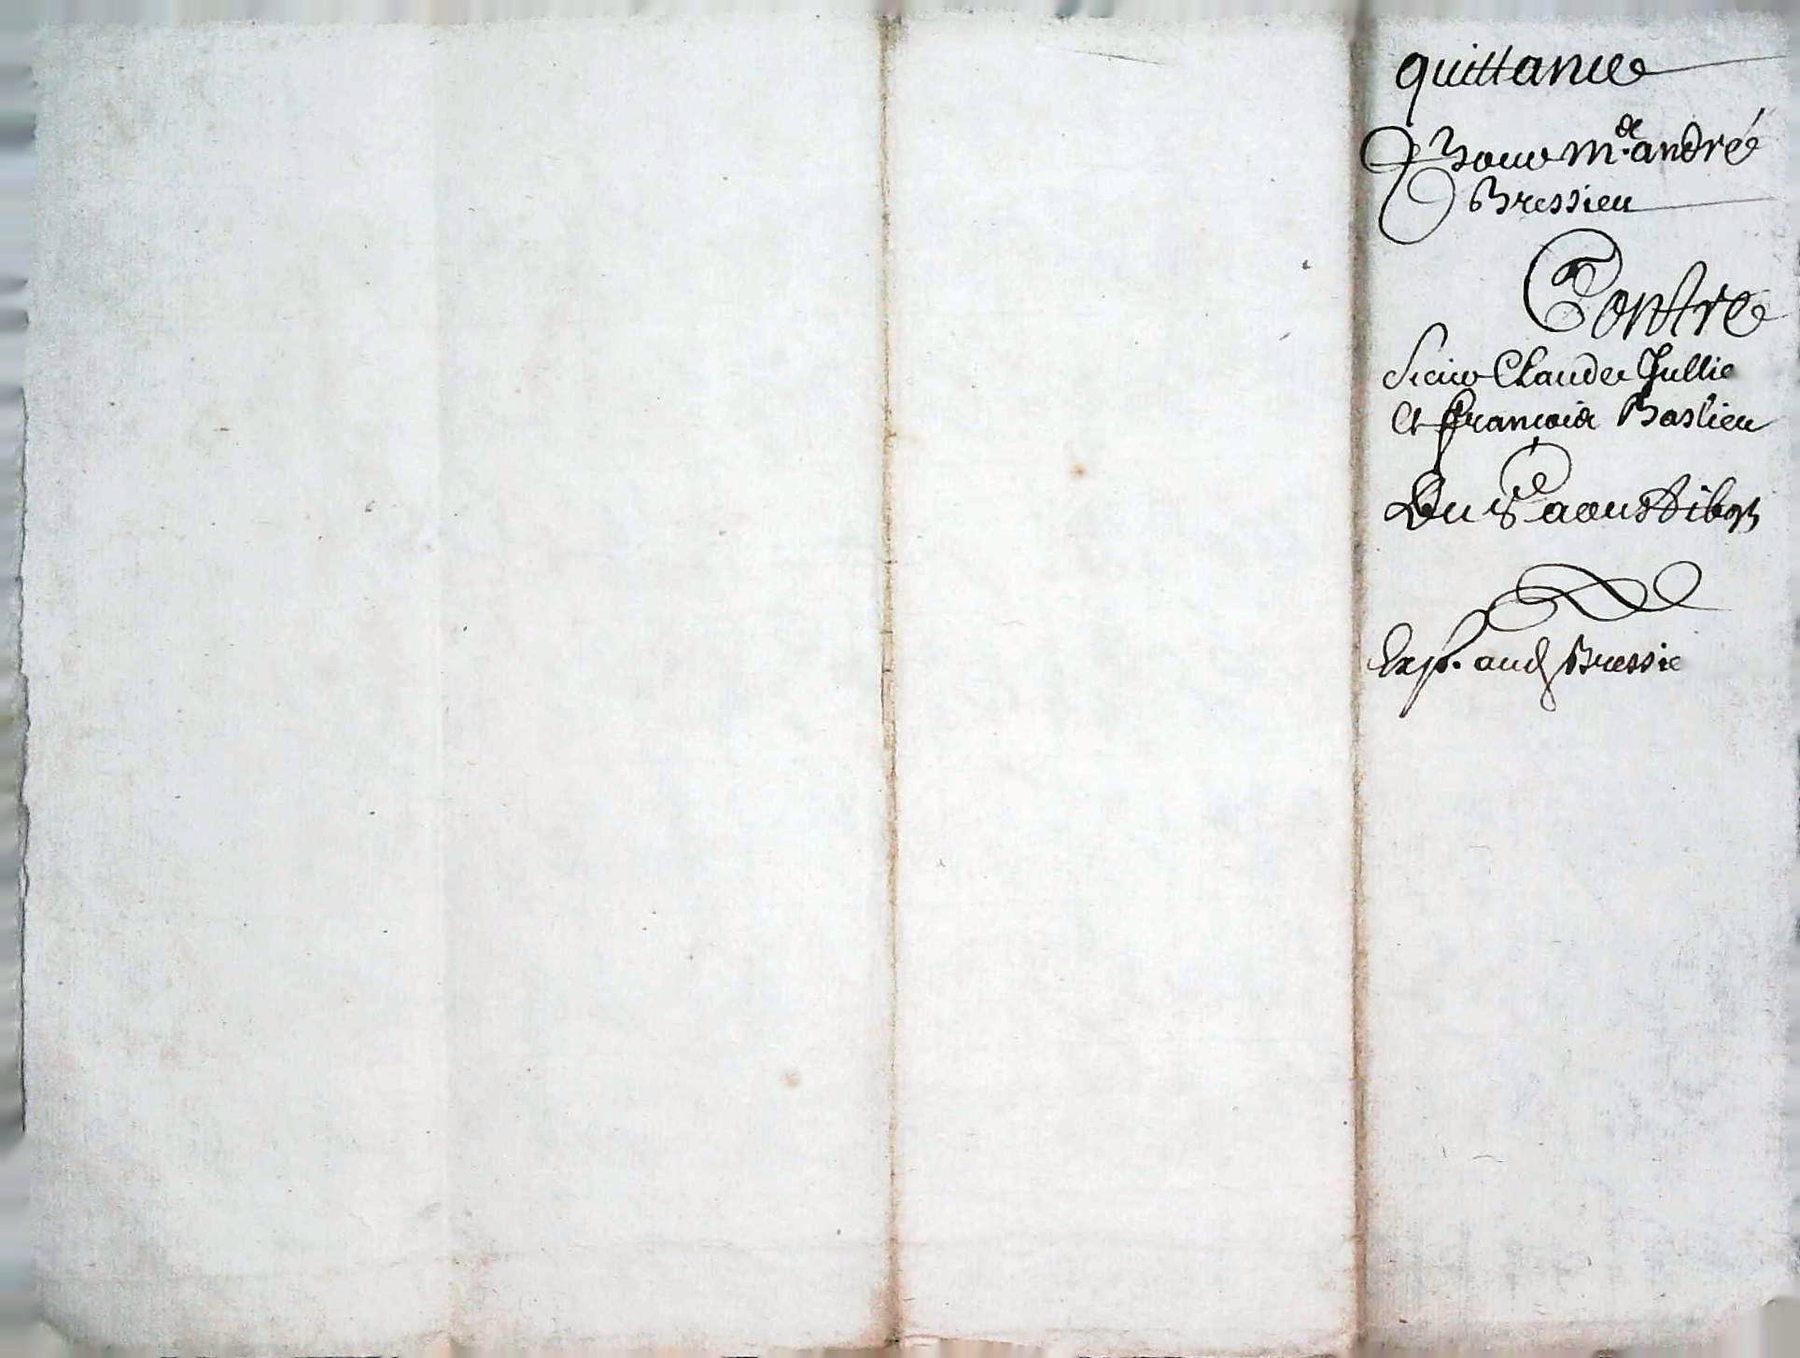 quittance
Pour m.de andré
Bressieu
Contre
Sieur Claude Jullie
Et françois Baslieu
Du aoust 1693
Exp. aud Bressie